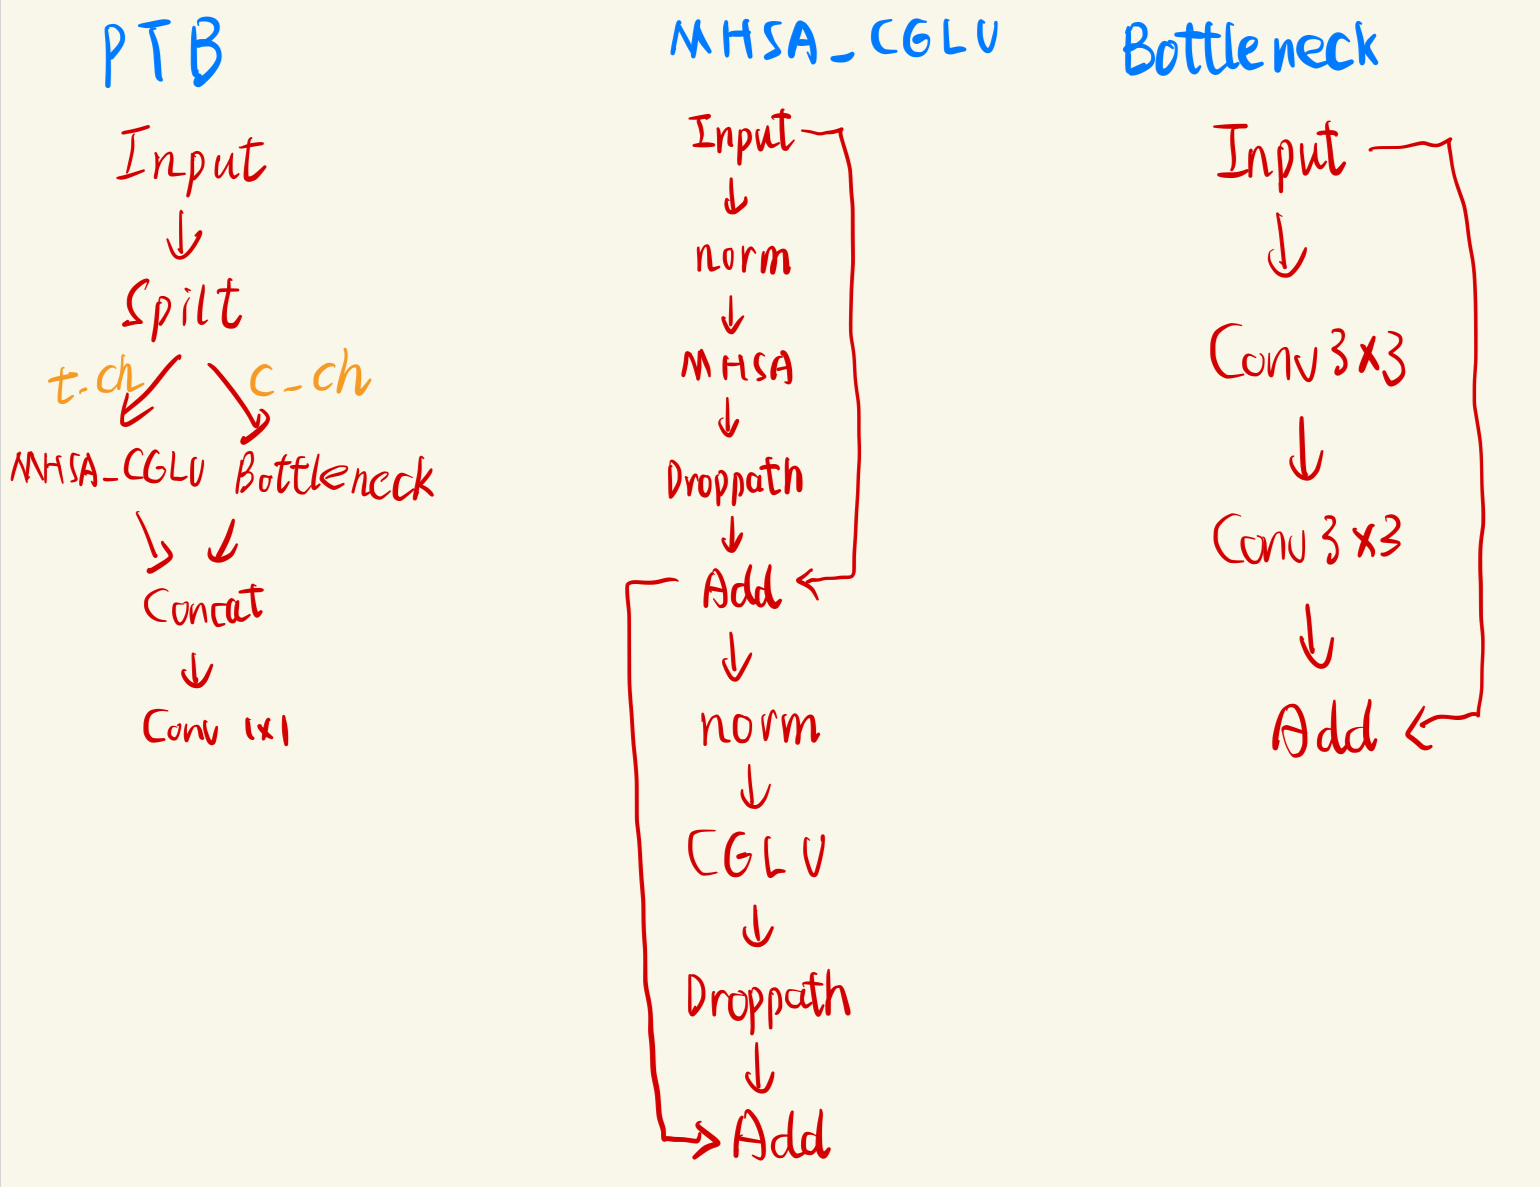 PTB
Input
Spilt
t_ch
c_ch
MHSA_CGLU
Bottleneck
Concat
Conv 1x1
MHSA_CGLU
Input
norm
MHSA
Droppath
Add
norm
CGLU
Droppath
Add
Bottleneck
Input
Conv 3x3
Conv 3x3
Add